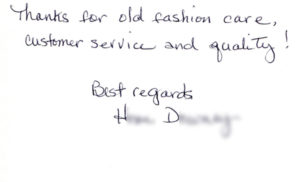 Thanks for old fashion care,
customer service and quality!
Best regards
H D